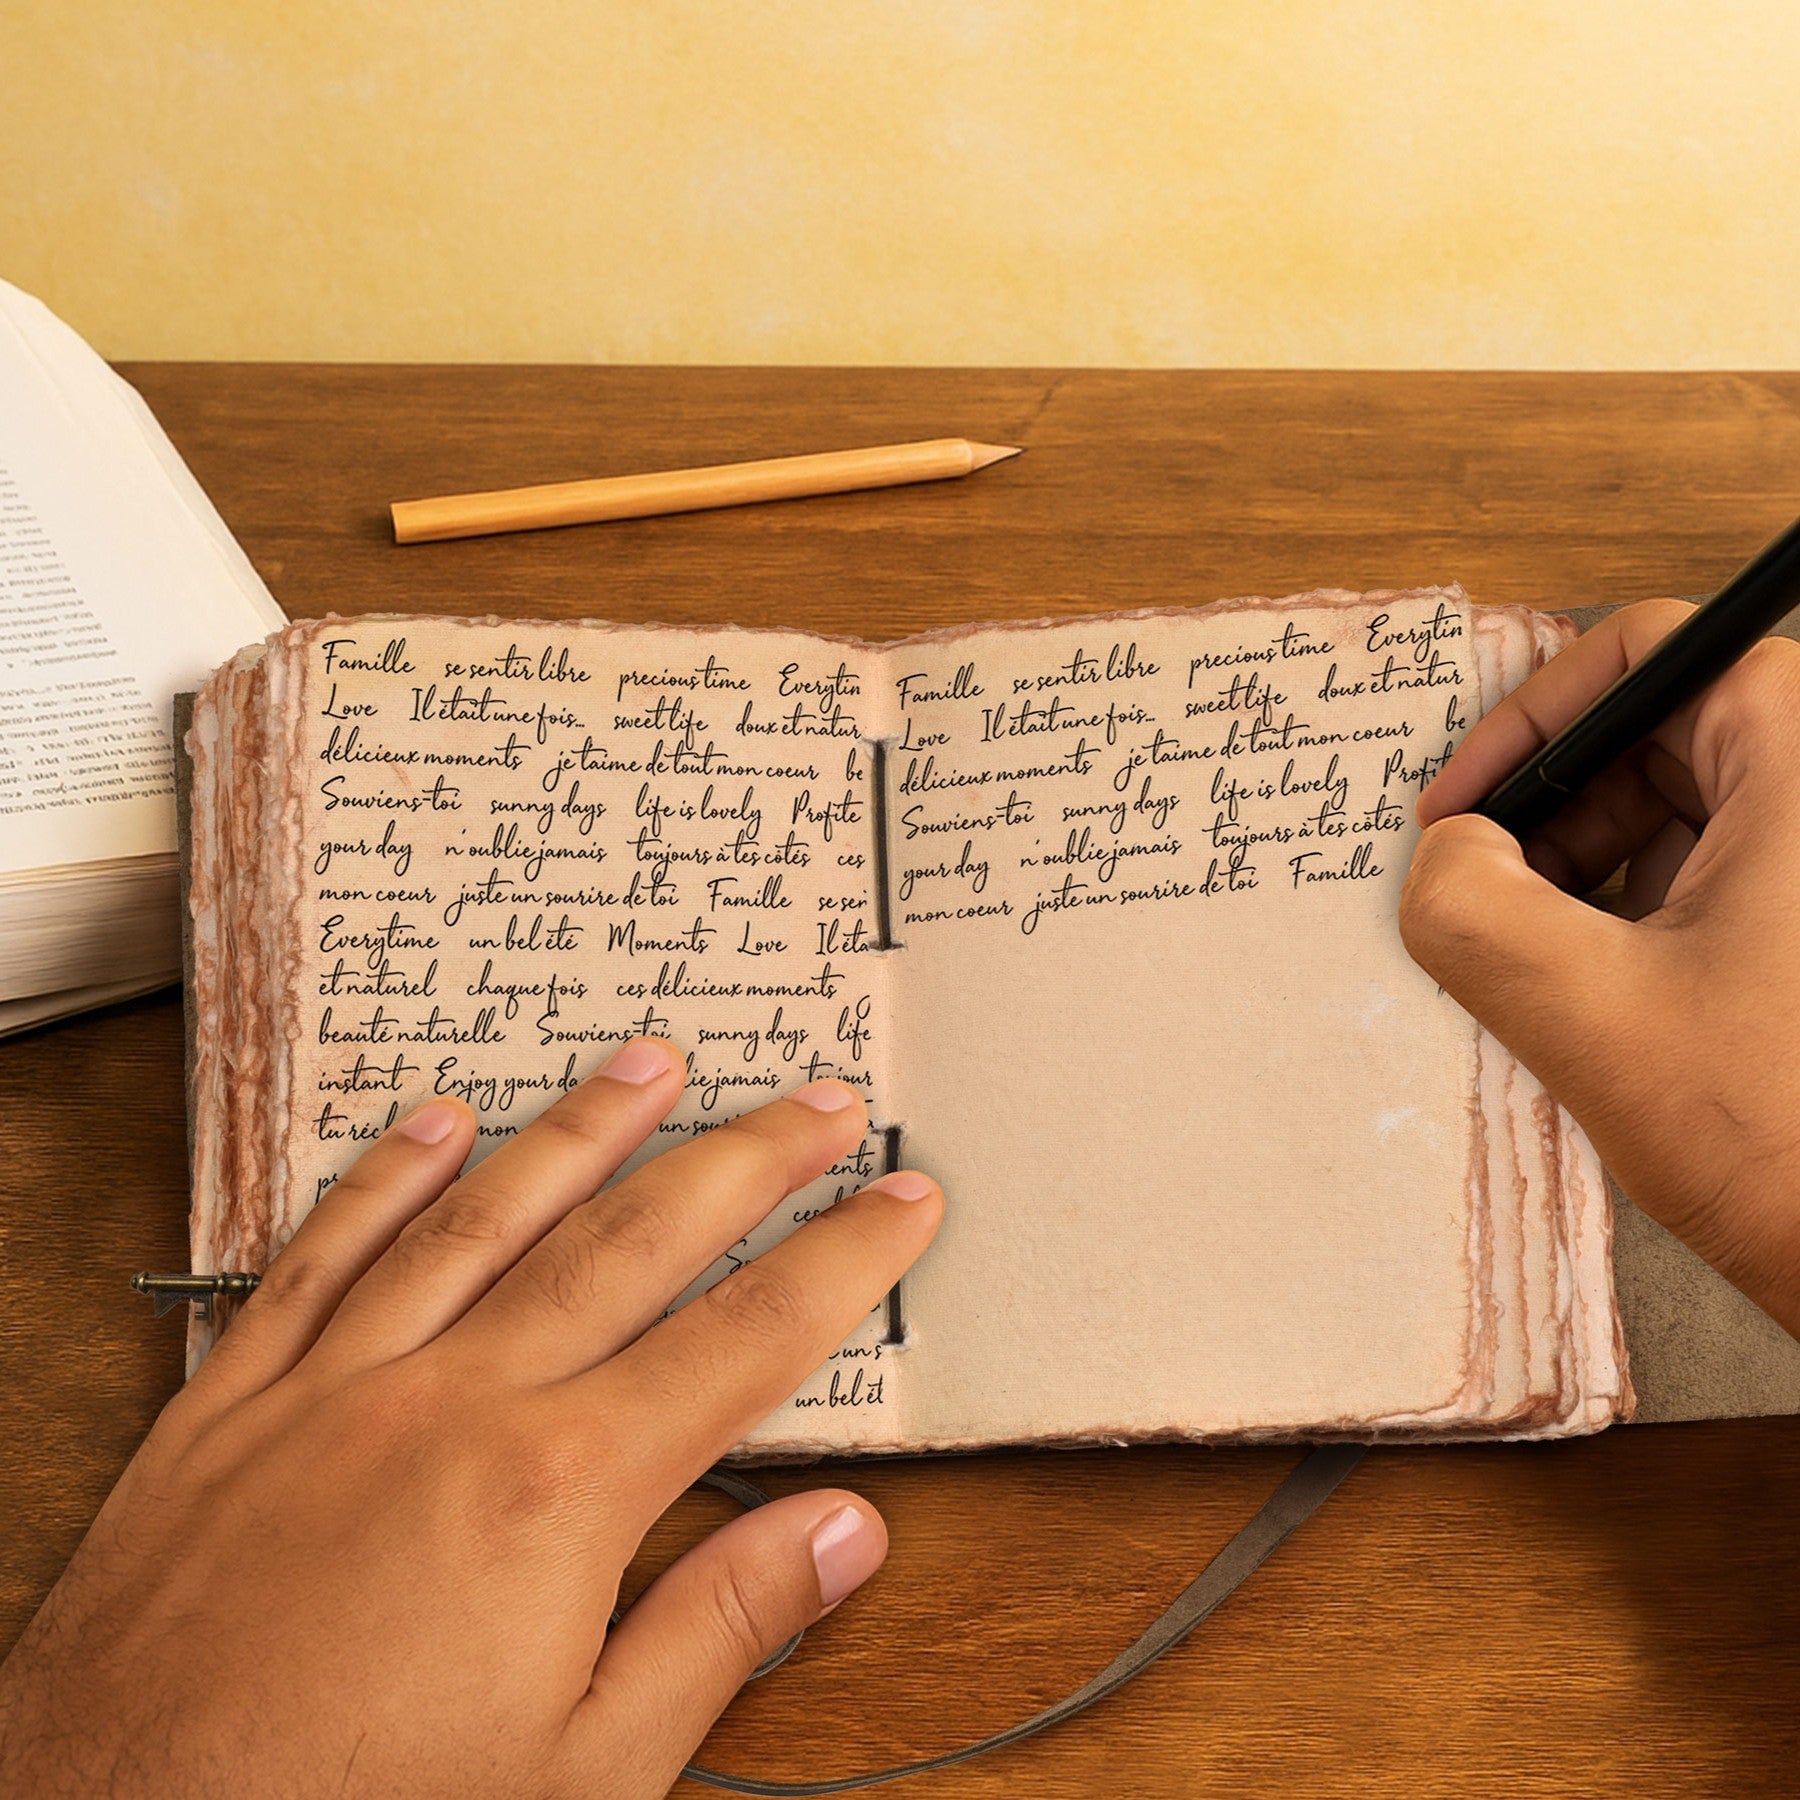 Famille se sentir libre precious time Everytin
Love Il était une fois... sweet life doux et natur
délicieux moments je t'aime de tout mon coeur be
Souviens-toi sunny days life is lovely Profite
your day n'oublie jamais toujours à tes côtés ces
mon coeur juste un sourire de toi Famille se sen
Everytime un bel été Moments Love Il éta
et naturel chaque fois ces délicieux moments
beauté naturelle Souviens-toi sunny days life
instant Enjoy your da lie jamais toujour
tu réc mon un sou
pr ents
ces
un s
un bel ét
Famille se sentir libre precious time Everytin
Love Il était une fois... sweet life doux et natur
délicieux moments je t'aime de tout mon coeur be
Souviens-toi sunny days life is lovely Profit
your day n'oublie jamais toujours à tes côtés
mon coeur juste un sourire de toi Famille